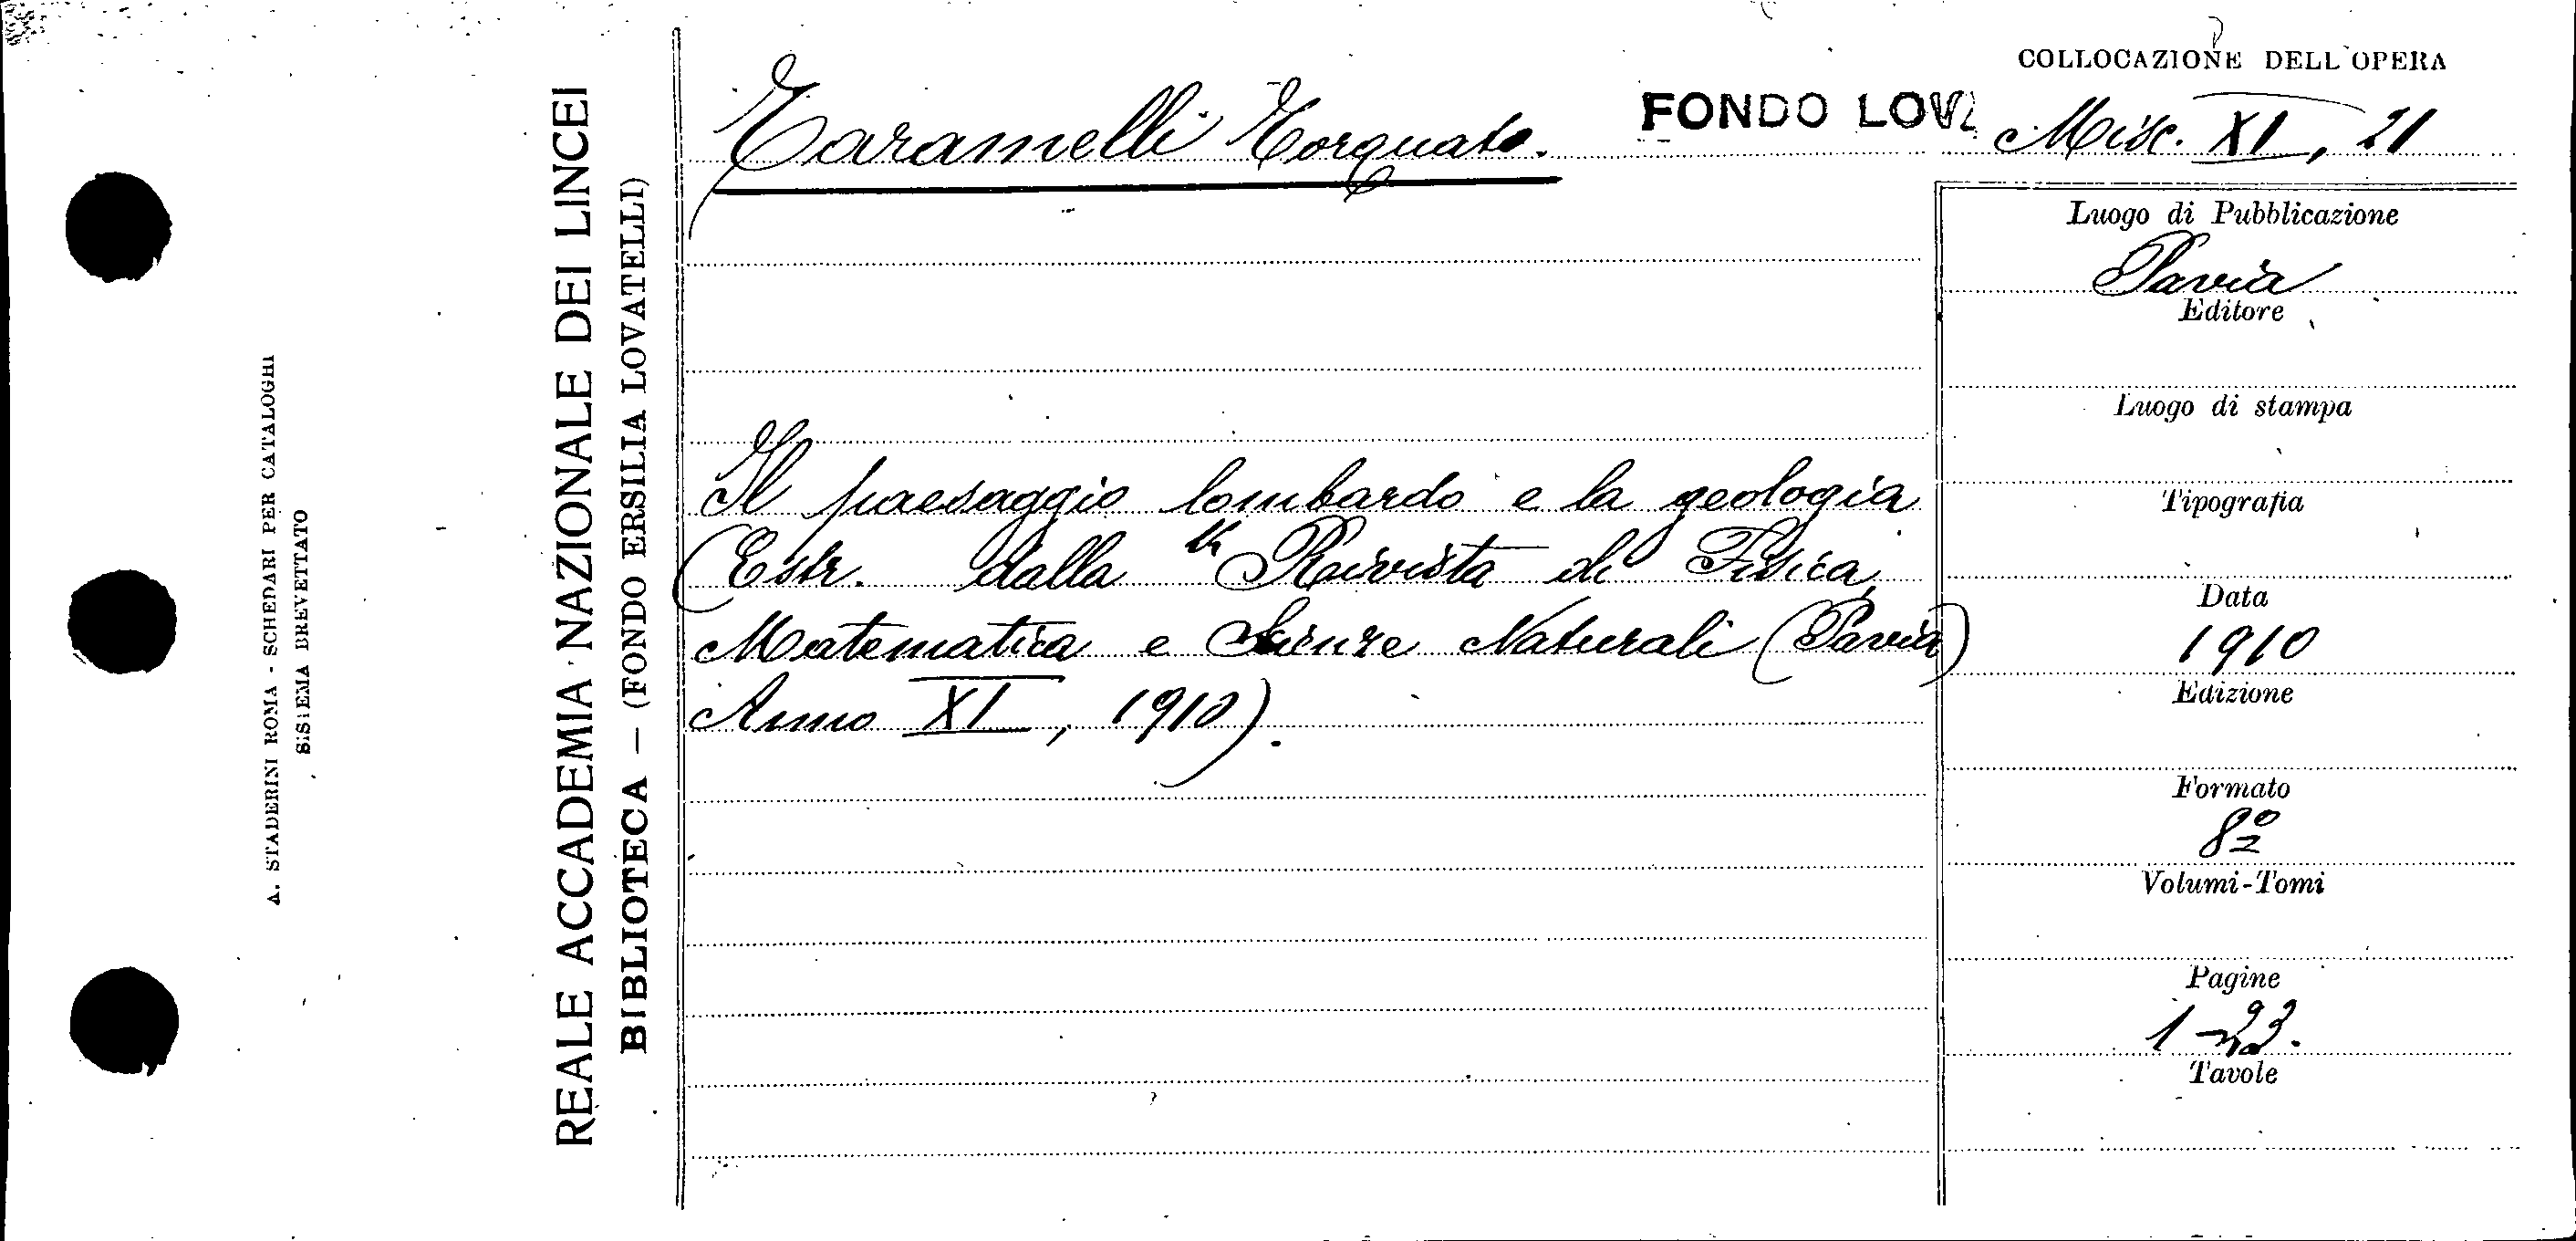 A. STADERINI ROMA - SCHEDARI PER CATALOGHI
SISTEMA BREVETTATO
REALE ACCADEMIA NAZIONALE DEI LINCEI
BIBLIOTECA — (FONDO ERSILIA LOVATELLI)
COLLOCAZIONE DELL'OPERA
Taramelli Torquato. FONDO LOVA Misc. XI, 21
Il paesaggio lombardo e la geologia
(Estr. dalla "Rivista di Fisica,
Matematica e Scienze Naturali (Pavia)
Anno XI, 1910).
Luogo di Pubblicazione
Pavia
Editore
Luogo di stampa
Tipografia
Data
1910
Edizione
Formato
8º
Volumi-Tomi
Pagine
1-23.
Tavole